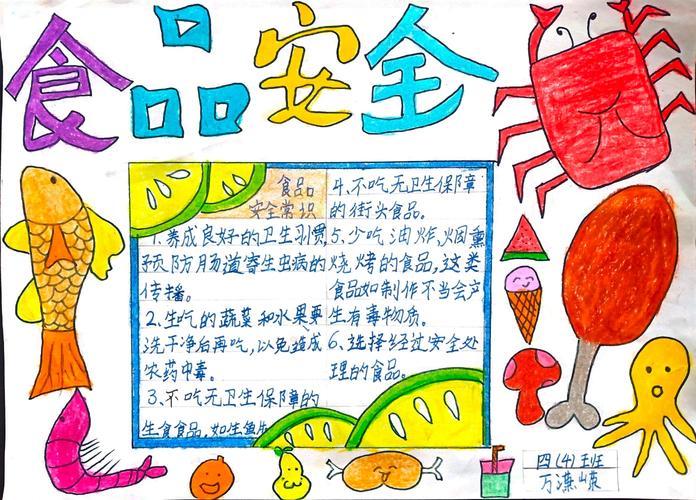 食品安全
食品
安全常识
1.养成良好的卫生习惯,
预防肠道寄生虫病的
传播。
2.生吃的蔬菜和水果要
洗干净后再吃,以免造成
农药中毒。
3.不吃无卫生保障的
生食食品,如生鱼片
4.不吃无卫生保障
的街头食品。
5.少吃油炸,烟熏
烧烤的食品,这类
食品如制作不当会产
生有毒物质。
6.选择经过安全处
理的食品。
四(4)班
万